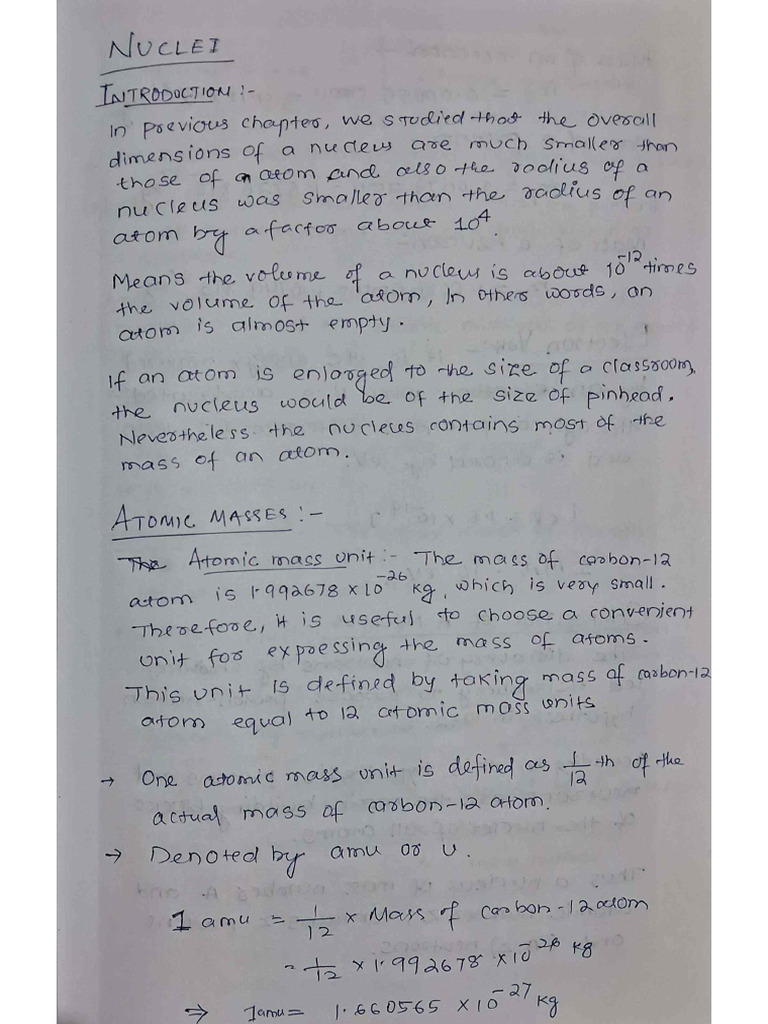 NUCLEI
INTRODUCTION :-
In previous chapter, we studied that the overall
dimensions of a nucleus are much smaller than
those of an atom and also the radius of a
nucleus was smaller than the radius of an
atom by a factor about 10⁴.
Means the volume of a nucleus is about 10⁻¹² times
the volume of the atom, In other words, an
atom is almost empty.
If an atom is enlarged to the size of a classroom,
the nucleus would be of the size of pinhead.
Nevertheless the nucleus contains most of the
mass of an atom.
ATOMIC MASSES :-
The Atomic mass unit :- The mass of carbon-12
atom is 1.992678 × 10⁻²⁶ kg, which is very small.
Therefore, it is useful to choose a convenient
unit for expressing the mass of atoms.
This unit is defined by taking mass of carbon-12
atom equal to 12 atomic mass units
→ One atomic mass unit is defined as 1/12 th of the
actual mass of carbon-12 atom.
→ Denoted by amu or u.
1 amu = 1/12 × Mass of carbon-12 atom
= 1/12 × 1.992678 × 10⁻²⁶ kg
⇒ 1amu = 1.660565 × 10⁻²⁷ kg